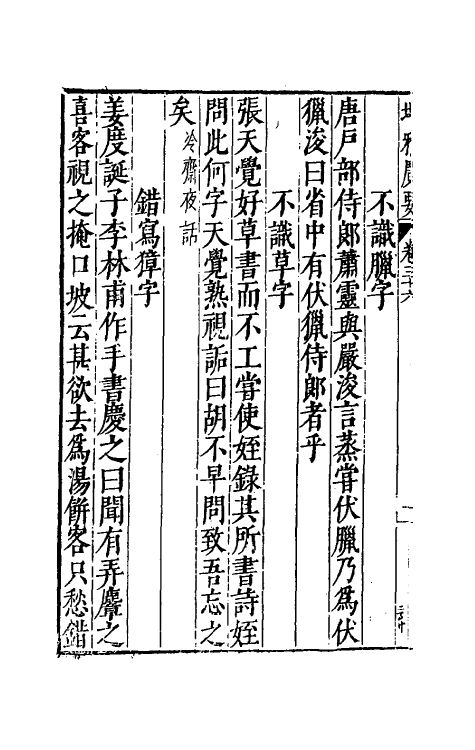 卷三十六
不識臘字
唐戸部侍郎蕭靈與嚴浚言蒸嘗伏臘乃爲伏
獵浚曰省中有伏獵侍郎者乎
不識草字
張天覺好草書而不工嘗使姪錄其所書詩姪
問此何字天覺熟視詬曰胡不早問致吾忘之
矣冷齋夜話
錯寫獐字
姜度誕子李林甫作手書慶之曰聞有弄麞之
喜客視之掩口坡云甚欲去爲湯餅客只愁錯